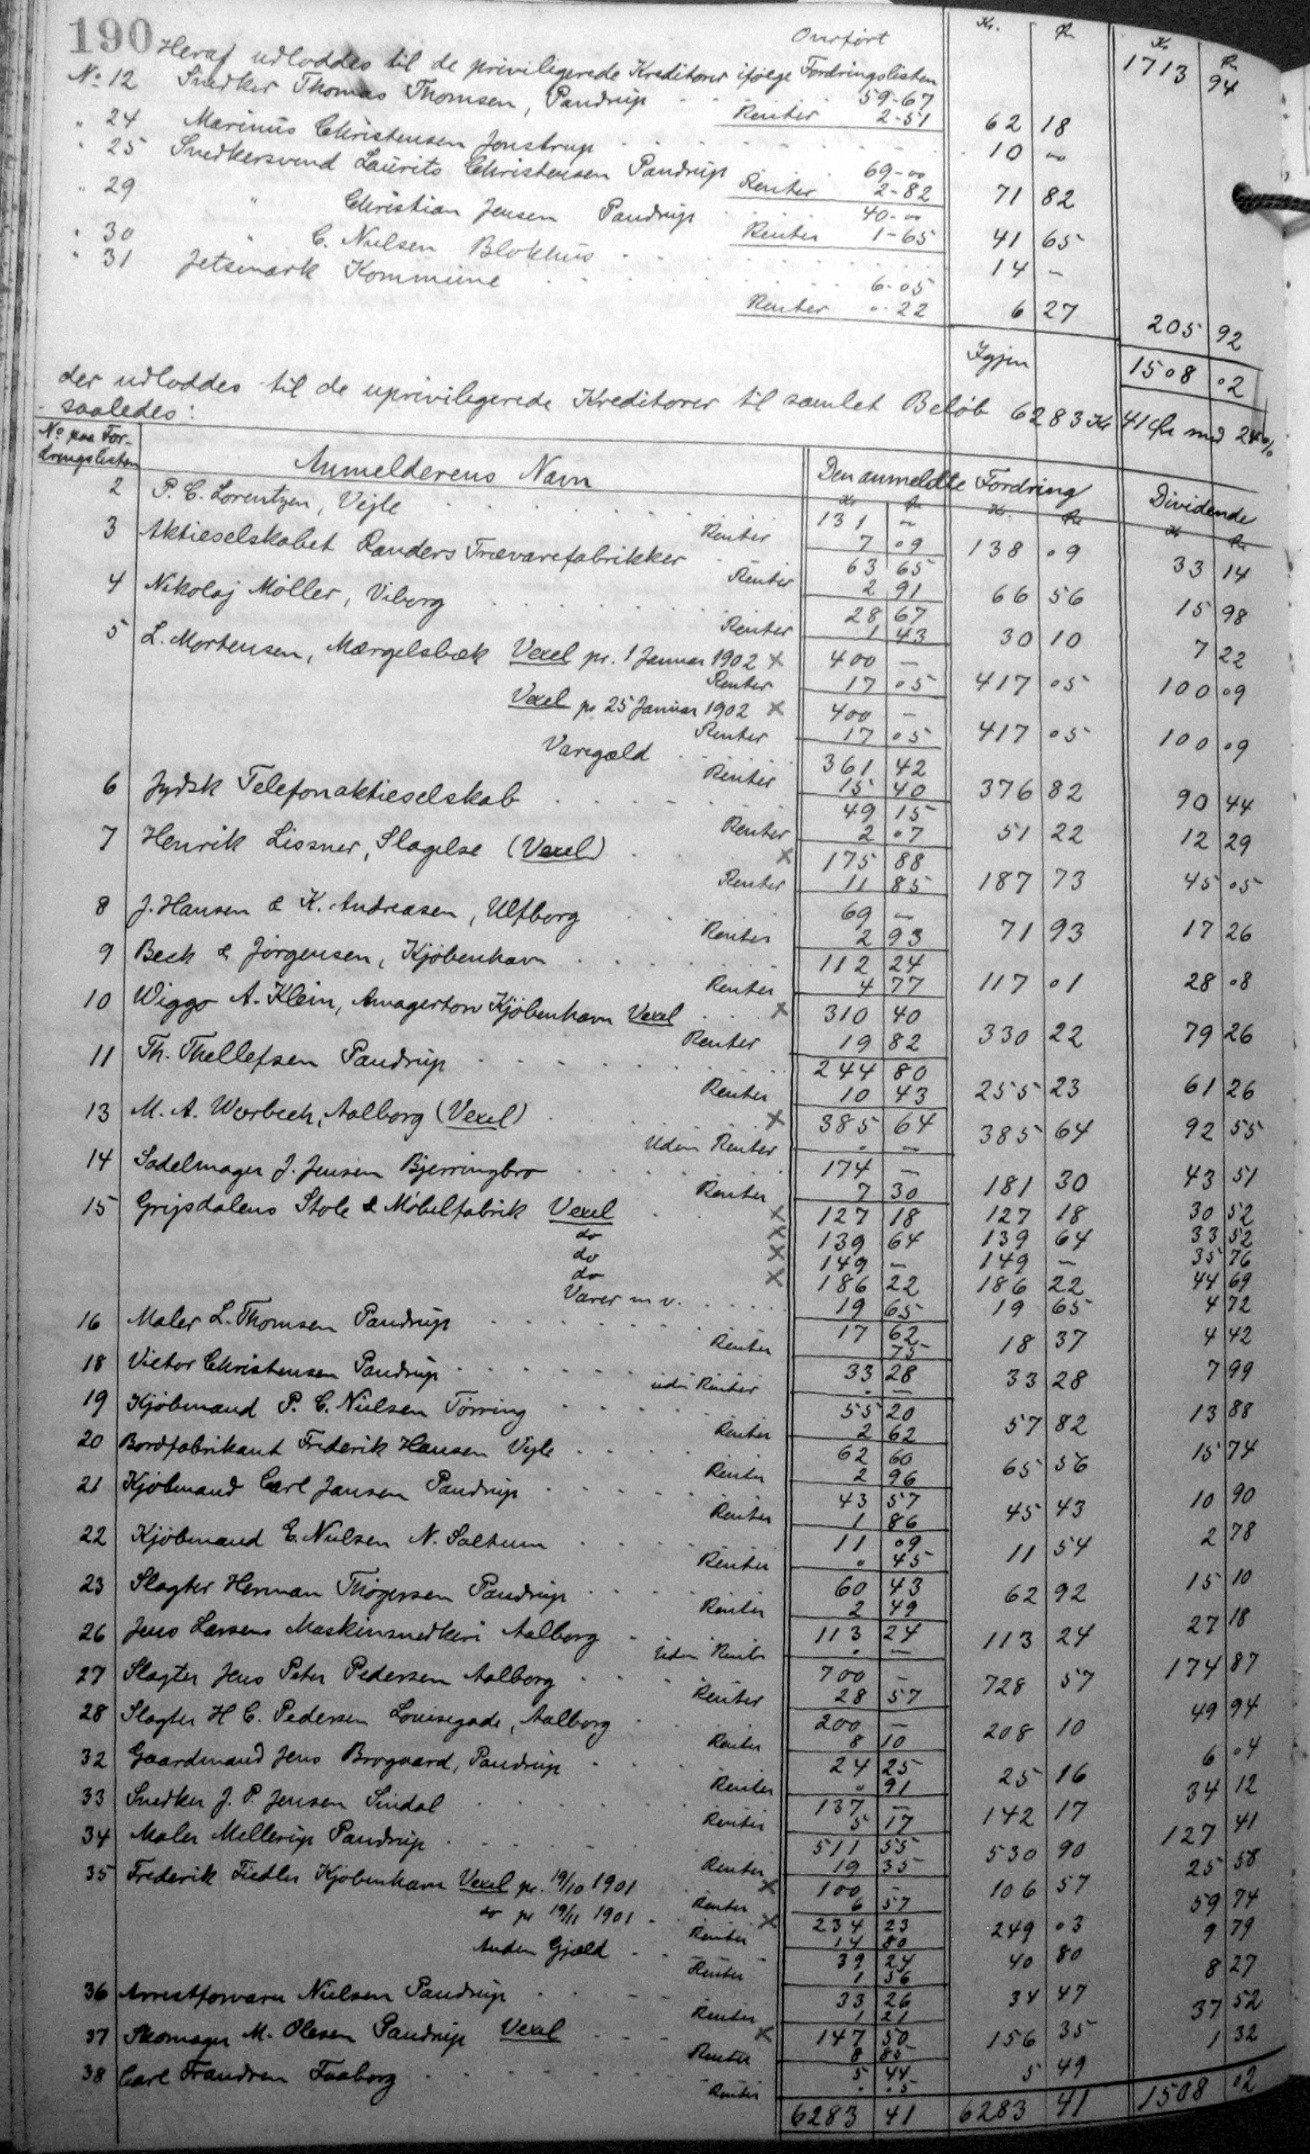 190 Overført Kr. Øre Kr. Øre
1713 94
Heraf udloddes til de priviligerede Kreditorer ifølge Fordringslisten
No 12 Snedker Thomas Thomsen, Pandrup 59-67
Renter 2-51 62 18
" 24 Marinus Christensen Jonstrup 10 "
" 25 Snedkersvend Laurits Christensen Pandrup 69-00
Renter 2-82 71 82
" 29 " Christian Jensen Pandrup 40-00
Renter 1-65 41 65
" 30 " C. Nielsen Blokhus 14 -
" 31 Jetsmark Kommune 6-05
Renter 0-22 6 27 205 92
Igjen 1508 02
der udloddes til de uprivilegerede Kreditorer til samlet Beløb 6283 Kr 41 Øre med 24%
saaledes:
No paa Fordringslisten Anmelderens Navn Den anmeldte Fordring Dividende
Kr Øre Kr. Øre Kr Øre
2 P. C. Lorentzen, Vejle 131 -
Renter 7 09 138 09 33 14
3 Aktieselskabet Randers Trævarefabrikker 63 65
Renter 2 91 66 56 15 98
4 Nikolaj Møller, Viborg 28 67
Renter 1 43 30 10 7 22
5 L. Mortensen, Mærgelsbæk Vexel pr. 1 Januar 1902 x 400 -
Renter 17 05 417 05 100 09
Vexel pr 25 Januar 1902 x 400 -
Renter 17 05 417 05 100 09
Varegæld 361 42
Renter 15 40 376 82 90 44
6 Jydsk Telefonaktieselskab 49 15
Renter 2 07 51 22 12 29
7 Henrik Lissner, Slagelse (Vexel) x 175 88
Renter 11 85 187 73 45 05
8 J. Hansen & K. Andreasen, Ulfborg 69 -
Renter 2 93 71 93 17 26
9 Beck & Jörgensen, Kjöbenhavn 112 24
Renter 4 77 117 01 28 08
10 Wiggo A. Klein, Amagertorv Kjöbenhavn Vexel x 310 40
Renter 19 82 330 22 79 26
11 Th. Thellefsen Pandrup 244 80
Renter 10 43 255 23 61 26
13 M. A. Worbech, Aalborg (Vexel) x 385 64
Uden Renter " - 385 64 92 55
14 Sadelmager J. Jensen Bjerringbro 174 -
Renter 7 30 181 30 43 51
15 Grejsdalens Stole & Möbelfabrik Vexel x 127 18 127 18 30 52
do x 139 64 139 64 33 52
do x 149 - 149 - 35 76
do x 186 22 186 22 44 69
Varer m v. 19 65 19 65 4 72
16 Maler L. Thomsen Pandrup 17 62
Renter 75 18 37 4 42
18 Victor Christensen Pandrup 33 28
uden Renter " - 33 28 7 99
19 Kjöbmand P. C. Nielsen Törring 55 20
Renter 2 62 57 82 13 88
20 Bordfabrikant Frederik Hansen Vejle 62 60
Renter 2 96 65 56 15 74
21 Kjöbmand Carl Jansen Pandrup 43 57
Renter 1 86 45 43 10 90
22 Kjöbmand E. Nielsen N. Saltum 11 09
Renter 0 45 11 54 2 78
23 Slagter Herman Thögersen Pandrup 60 43
Renter 2 49 62 92 15 10
26 Jens Larsens Maskinsnedkeri Aalborg 113 24
Uden Renter " - 113 24 27 18
27 Slagter Jens Peter Pedersen Aalborg 700 -
Renter 28 57 728 57 174 87
28 Slagter H C. Pedersen Louisegade, Aalborg 200 -
Renter 8 10 208 10 49 94
32 Gaardmand Jens Brogaard, Pandrup 24 25
Renter 0 91 25 16 6 04
33 Snedker J. P. Jensen Sindal 137 -
Renter 5 17 142 17 34 12
34 Maler Mellerup Pandrup 511 55
Renter 19 35 530 90 127 41
35 Frederik Fiedler Kjöbenhavn Vexel pr. 19/10 1901 x 100 -
Renter 6 57 106 57 25 58
do pr 19/11 1901 x 234 23
Renter 14 80 249 03 59 74
Anden Gjæld 39 24
Renter 1 56 40 80 9 79
36 Arrestforvarer Nielsen Pandrup 33 26
Renter 1 21 34 47 8 27
37 Skomager M. Olesen Pandrup Vexel x 147 50
Renter 8 85 156 35 37 52
38 Carl Frandsen Faaborg 5 44
Renter " 05 5 49 1 32
6283 41 6283 41 1508 02